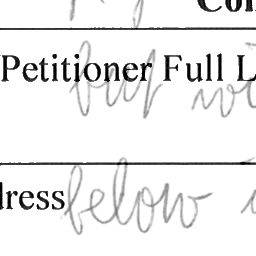 Con
Petitioner Full L
but wi
dress
below i